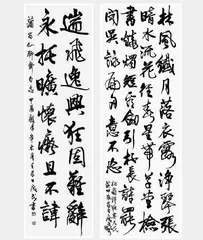 林風纖月落衣露淨琴張
暗水流花徑春星帶草堂檢
書燒燭短看劍引杯長詩
罷聞吳詠扁舟意不忘
遄飛逸興狂固難辭
永托曠懷癡且不諱